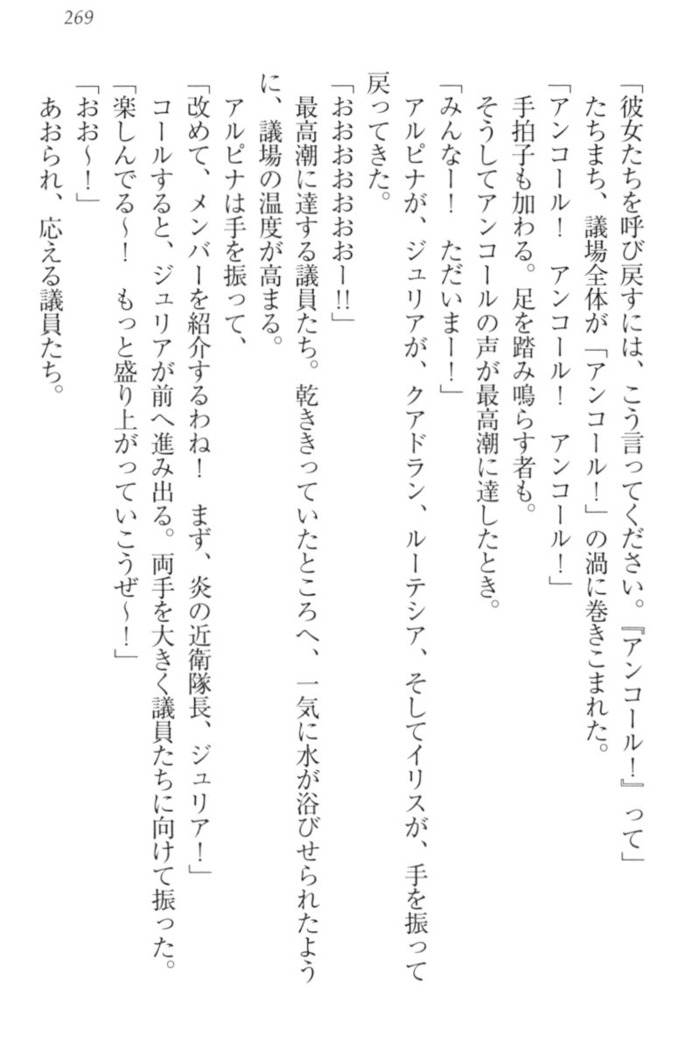 269
「彼女たちを呼び戻すには、こう言ってください。『アンコール！』って」
たちまち、議場全体が「アンコール！」の渦に巻きこまれた。
「アンコール！　アンコール！　アンコール！」
手拍子も加わる。足を踏み鳴らす者も。
そうしてアンコールの声が最高潮に達したとき。
「みんなー！　ただいまー！」
アルピナが、ジュリアが、クアドラン、ルーテシア、そしてイリスが、手を振って
戻ってきた。
「おおおおおおおー!!」
最高潮に達する議員たち。乾ききっていたところへ、一気に水が浴びせられたよう
に、議場の温度が高まる。
アルピナは手を振って、
「改めて、メンバーを紹介するわね！　まず、炎の近衛隊長、ジュリア！」
コールすると、ジュリアが前へ進み出る。両手を大きく議員たちに向けて振った。
「楽しんでる～！　もっと盛り上がっていこうぜ～！」
「おお～！」
あおられ、応える議員たち。